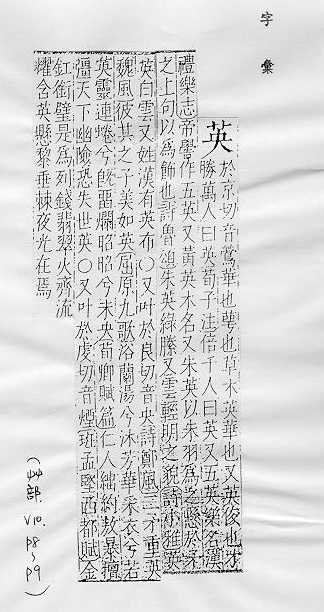 字彙
英
於京切音鶯華也萼也草木英華也又英俊也才
勝萬人曰英荀子注倍千人曰英又五英樂名漢
禮樂志帝嚳作五英又黃英木名又朱英以朱羽爲之懸於矛
之上句以爲飾也詩魯頌朱英綠縢又雲輕明之貌詩小雅英
英白雲又姓漢有英布〇又叶於良切音央詩鄭風二矛重英
魏風彼其之子美如英屈原九歌浴蘭湯兮沐芳華采衣兮若
英靈連蜷兮旣畱爛昭昭兮未央荀卿賦仁人絀約敖暴擅
彊天下幽險恐失世英〇又叶於虔切音煙班孟堅西都賦金
釭銜璧是爲列錢翡翠火齊流
耀含英懸黎垂棘夜光在焉
(艸部. V10. P8~P9)